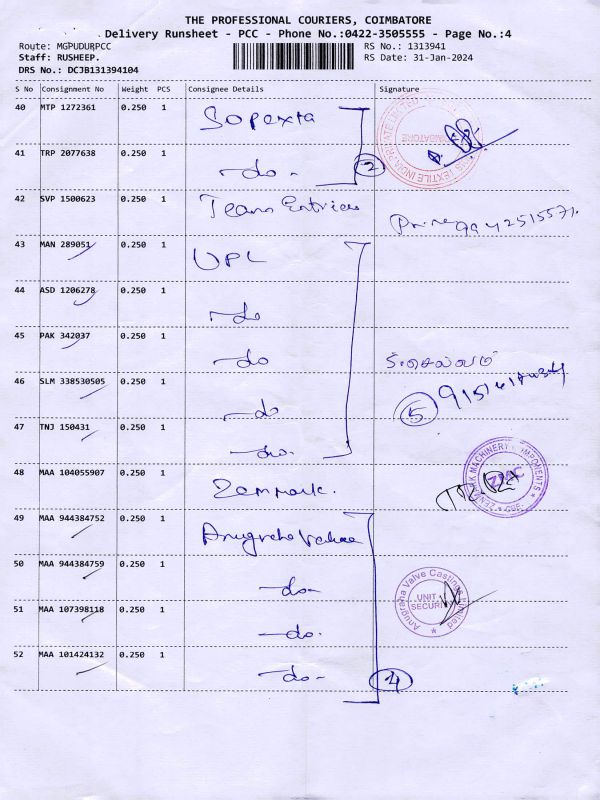 THE PROFESSIONAL COURIERS, COIMBATORE
Delivery Runsheet - PCC - Phone No.:0422-3505555 - Page No.:4
Route: MGPUDURPCC
RS No.: 1313941
Staff: RUSHEEP.
RS Date: 31-Jan-2024
DRS No.: DCJB131394104
S No Consignment No Weight PCS Consignee Details Signature
40 MTP 1272361 0.250 1 Sopexta
41 TRP 2077638 0.250 1 -do- 2
42 SVP 1500623 0.250 1 Team
43 MAN 289051 0.250 1 UPL
44 ASD 1206278 0.250 1 -do
45 PAK 342037 0.250 1 -do
46 SLM 338530505 0.250 1 -do 5
47 TNJ 150431 0.250 1 -do.
48 MAA 104055907 0.250 1 Zenmark.
ZENMARK MACHINERY COMPONENTS
ZMC
* CBE. *
49 MAA 944384752 0.250 1 Anugraha Valve
50 MAA 944384759 0.250 1 -do-
Anugraha Valve Castings Limited
UNIT
SECURITY
51 MAA 107398118 0.250 1 -do.
52 MAA 101424132 0.250 1 -do- 4